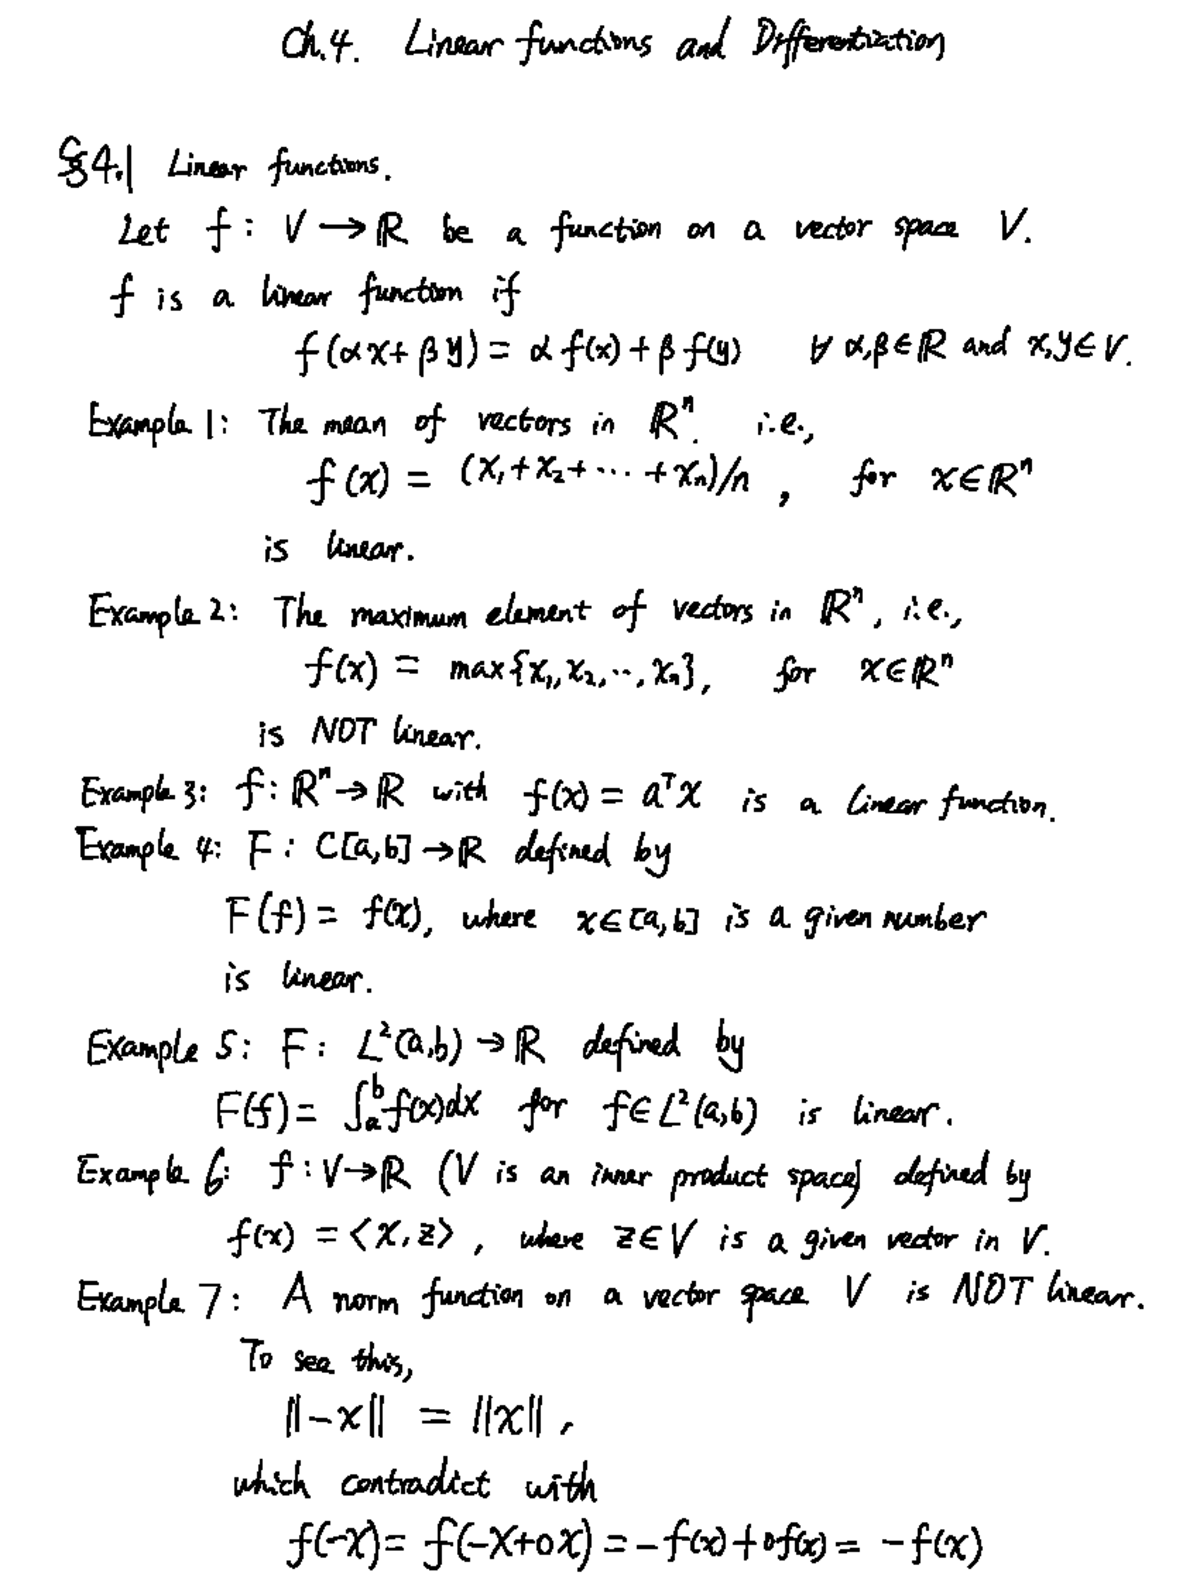 Ch.4. Linear functions and Differentiation
§4.1 Linear functions.
Let f: V → ℝ be a function on a vector space V.
f is a linear function if
f(αx+βy) = αf(x)+βf(y) ∀ α,β∈ℝ and x,y∈V.
Example 1: The mean of vectors in ℝⁿ. i.e.,
f(x) = (x₁+x₂+⋯+xₙ)/n, for x∈ℝⁿ
is linear.
Example 2: The maximum element of vectors in ℝⁿ, i.e.,
f(x) = max{x₁,x₂,⋯,xₙ}, for x∈ℝⁿ
is NOT linear.
Example 3: f: ℝⁿ→ℝ with f(x) = aᵀx is a linear function.
Example 4: F: C[a,b]→ℝ defined by
F(f) = f(x), where x∈[a,b] is a given number
is linear.
Example 5: F: L²(a,b)→ℝ defined by
F(f) = ∫ₐᵇ f(x)dx for f∈L²(a,b) is linear.
Example 6: f: V→ℝ (V is an inner product space) defined by
f(x) = <x,z>, where z∈V is a given vector in V.
Example 7: A norm function on a vector space V is NOT linear.
To see this,
||-x|| = ||x||,
which contradict with
f(-x) = f(-x+0x) = -f(x)+0f(x) = -f(x)